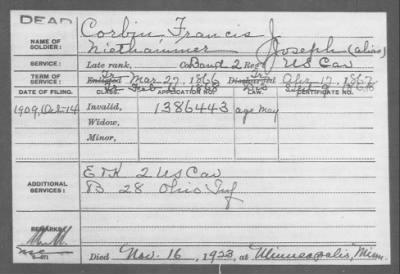 DEAD
Corbin, Francis J
NAME OF SOLDIER: Niethammer Joseph (alias)
SERVICE: Late rank, Co Band 2 Reg't US Cav
TERM OF SERVICE: Tr Enlisted Mar 27, 1866 Discharged Tr Apr 17, 1867
DATE OF FILING. CLASS. APPLICATION NO. LAW. CERTIFICATE NO.
1909, Oct-14 Invalid, 1386443 age May
Widow,
Minor,
ADDITIONAL SERVICES: E & K 2 US Cav
B 28 Ohio Inf
REMARKS:
Died Nov. 16, 1923, at Minneapolis, Minn.